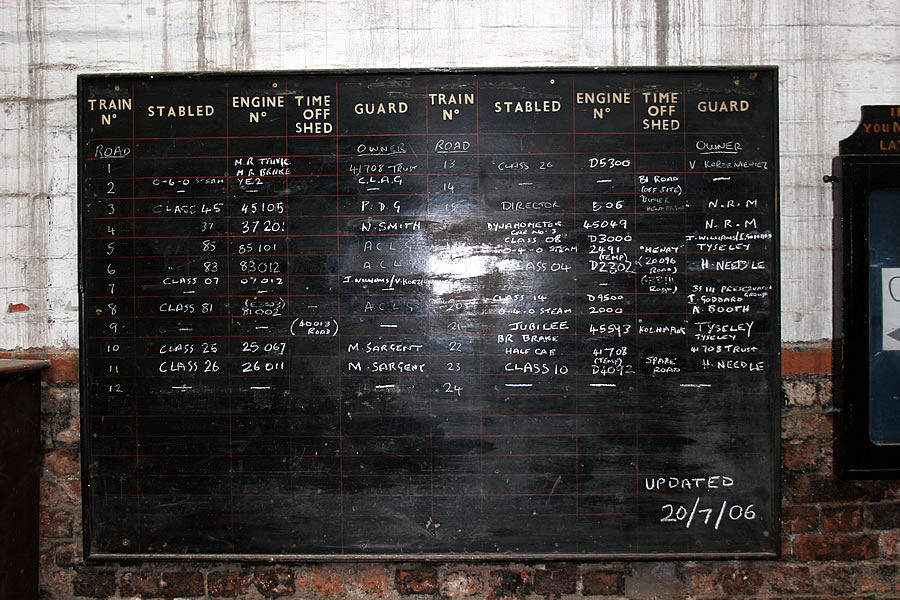 TRAIN Nº STABLED ENGINE Nº TIME OFF SHED GUARD TRAIN Nº STABLED ENGINE Nº TIME OFF SHED GUARD
ROAD OWNER ROAD OWNER
1 M.R BRAKE 41708 TRUST 13 CLASS 26 D5300 V KORZENIEWICZ
2 0-6-0 STEAM YE2 C.L.A.G — 14 — — B1 ROAD (OFF SITE) —
3 CLASS 45 45105 P.D.G DIRECTOR 506 N.R.M
4 37 3720 N.SMITH DYNAMOMETER CAR No.3 45049 N.R.M
5 85 85101 A C L G CLASS 08 D3000 J.WILLIAMS/I.GODDARD
0-4-0 STEAM 2491 "HENRY" TYSELEY
6 " 83 83012 A C L CLASS 04 (TEMP) D2302 (20096 ROAD) H.NEEDLE
7 CLASS 07 07012 J.WILLIAMS/V.KORZ — ROAD)
8 CLASS 81 81002 — A C L G 20 CLASS 14 D9500 35111 PRESERVATION GROUP I.GODDARD
0-4-0 STEAM 2000 A.BOOTH
9 — — (40013 ROAD) — 21 JUBILEE 45593 "KOLHAPUR" TYSELEY
BR BRAKE TYSELEY
10 CLASS 25 25 067 M.SARGENT 22 HALF CAB 41708 41708 TRUST
11 CLASS 26 26 011 M.SARGENT 23 CLASS 10 (TEMP) D4092 SPARE ROAD H.NEEDLE
12 — — — 24 — — —
UPDATED
20/7/06
YOU
LAT